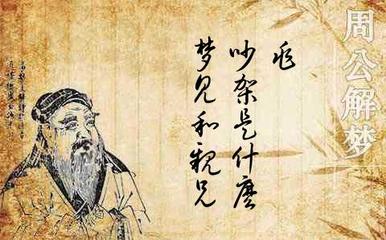 周公解梦
梦见和親兄
吵架是什麼
兆